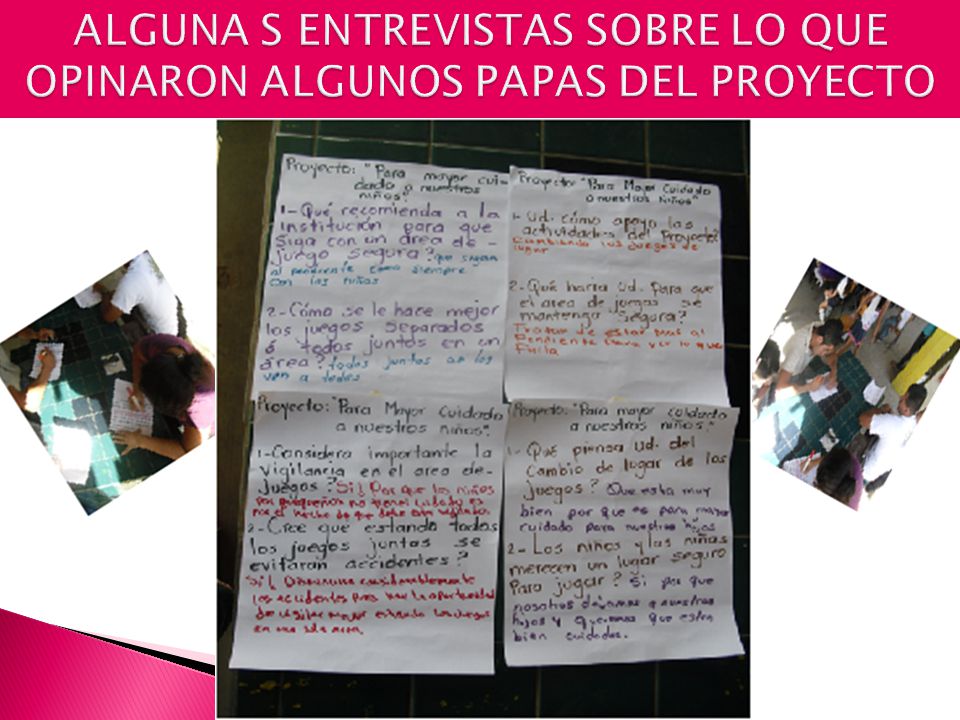 ALGUNA S ENTREVISTAS SOBRE LO QUE
OPINARON ALGUNOS PAPAS DEL PROYECTO
Proyecto: "Para mayor cui-
dado a nuestros
niños"
1-Qué recomienda a la
institución para que
siga con un área de-
juego segura? que sigan
al pendiente como siempre
con los niños
2-Cómo se le hace mejor
los juegos separados
ó todos juntos en un
área? todos juntos
ven a todos
Proyecto: "Para Mayor Cuidado
a nuestros Niños"
1- Ud. cómo apoyo las
actividades del Proyecto?
Cambiando los juegos de
lugar
2-Qué haria Ud. para que
el area de juegos se
mantenga segura?
Tratar de estar mas al
Pendiente para ver lo que
Falla
Proyecto: "Para Mayor Cuidado
a nuestros niños".
1-Considera importante la
vigilancia en el area de-
juegos? Si! Por que los niños
por pequeños no tienen cuidado
por el hecho de que
2-Cree que estando todos
los juegos juntos se
evitaran accidentes?
Si! Disminuye considerablemente
los accidentes pues hay la oportunidad
de vigilar mejor estando los juegos
en una sola area.
Proyecto: "Para mayor cuidado
a nuestros niños."
1- Qué piensa Ud. del
Cambio de lugar de los
juegos? Que esta muy
bien por que es para mayor
cuidado para nuestros hijos
2- Los niños y las niñas
merecen un lugar seguro
Para jugar? Si por que
nosotros dejamos a nuestros
hijos y queremos que esten
bien cuidados.